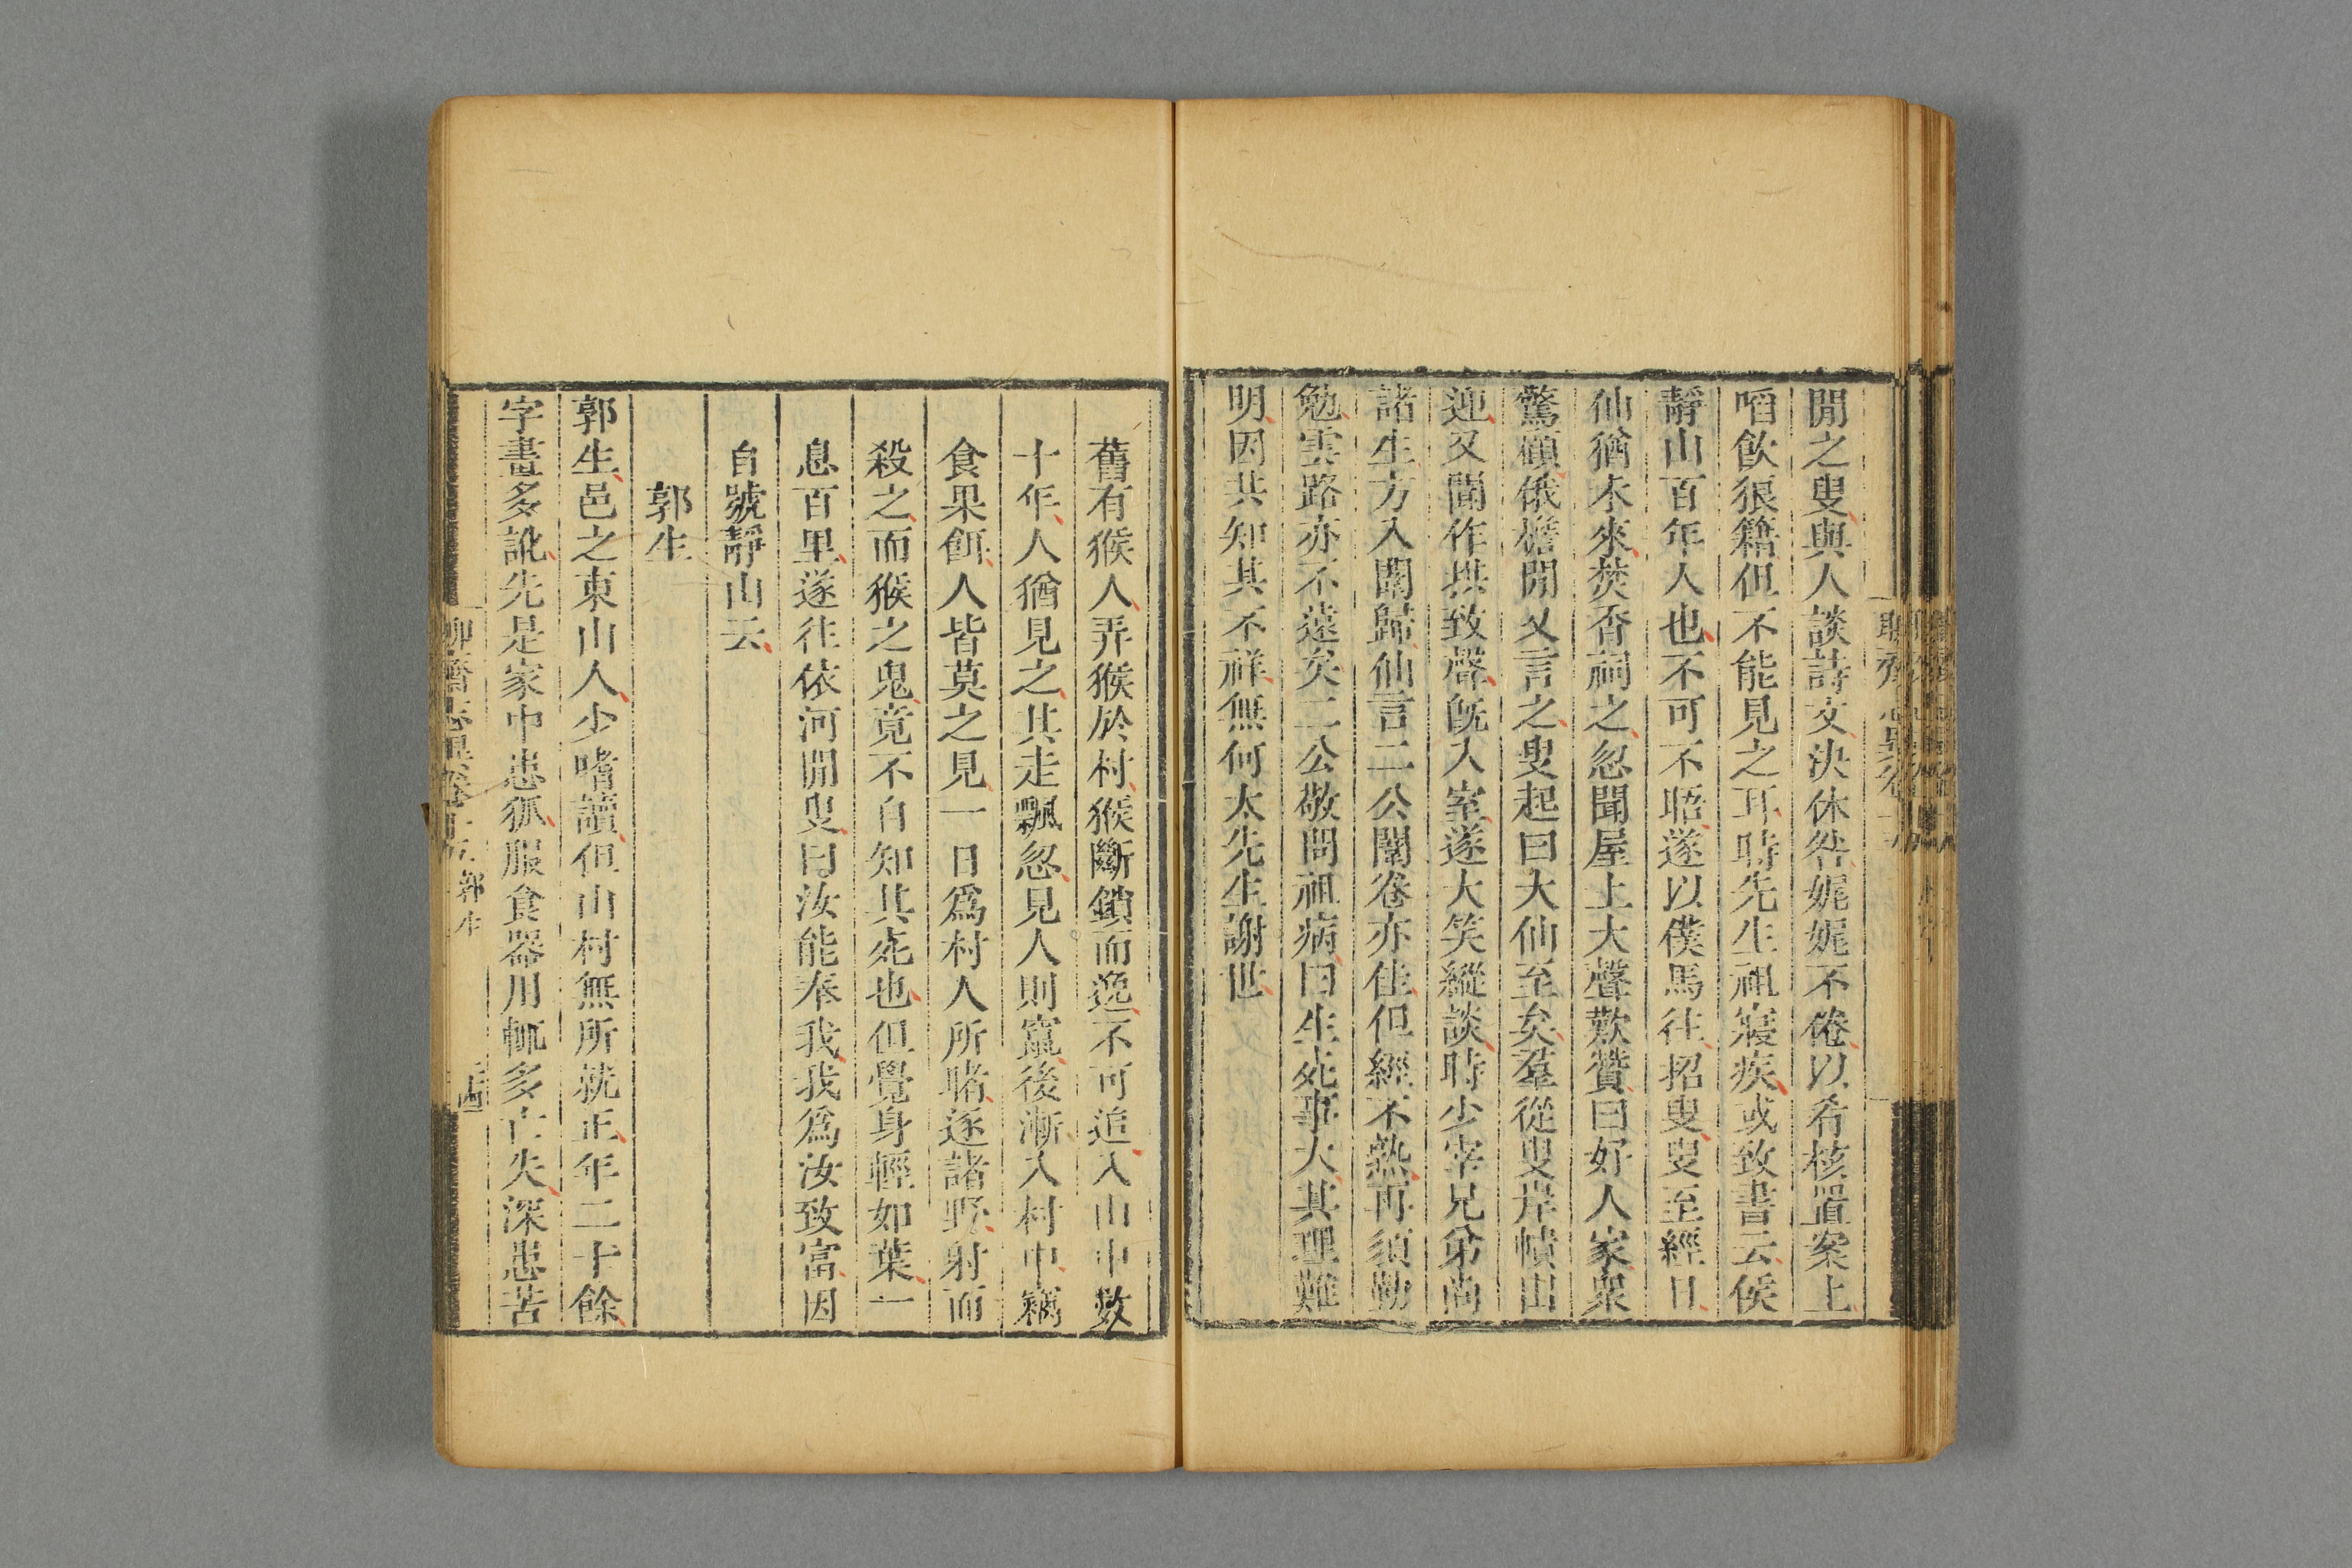 閒之叟與人談詩文決休咎娓娓不倦以肴核置案上
啗飲狼籍但不能見之耳時先生祖寢疾或致書云侯
靜山百年人也不可不晤遂以僕馬往招叟叟至經日
仙猶未來焚香祠之忽聞屋上大聲歎贊曰好人家衆
驚顧俄檐閒又言之叟起曰大仙至矣羣從叟岸幘出
迎又聞作拱致聲旣入室遂大笑縱談時少宰兄弟尚
諸生方入闈歸仙言二公闈卷亦佳但經不熟再須勤
勉雲路亦不遠矣二公敬問祖病曰生死事大其理難
明因共知其不祥無何太先生謝世
舊有猴人弄猴於村猴斷鎖而逸不可追入山中數
十年人猶見之其走飄忽見人則竄後漸入村中竊
食果餌人皆莫之見一日爲村人所睹逐諸野射而
殺之而猴之鬼竟不自知其死也但覺身輕如葉一
息百里遂往依河閒叟曰汝能奉我我爲汝致富因
自號靜山云
郭生
郭生邑之東山人少嗜讀但山村無所就正年二十餘
字畫多訛先是家中患狐服食器用輒多亡失深患苦
聊齋志異卷十五 郭生